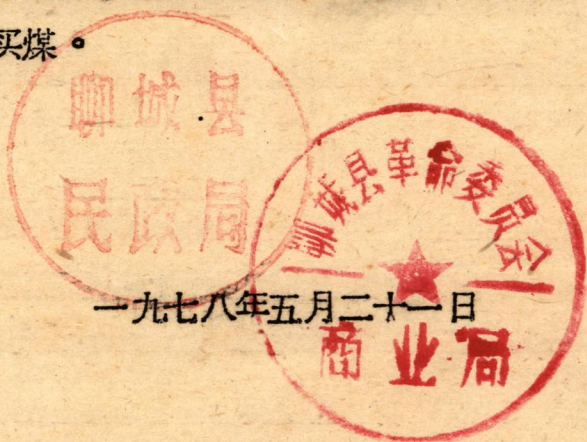 买煤。
聊城县
民政局
聊城县革命委员会
商业局
一九七八年五月二十一日